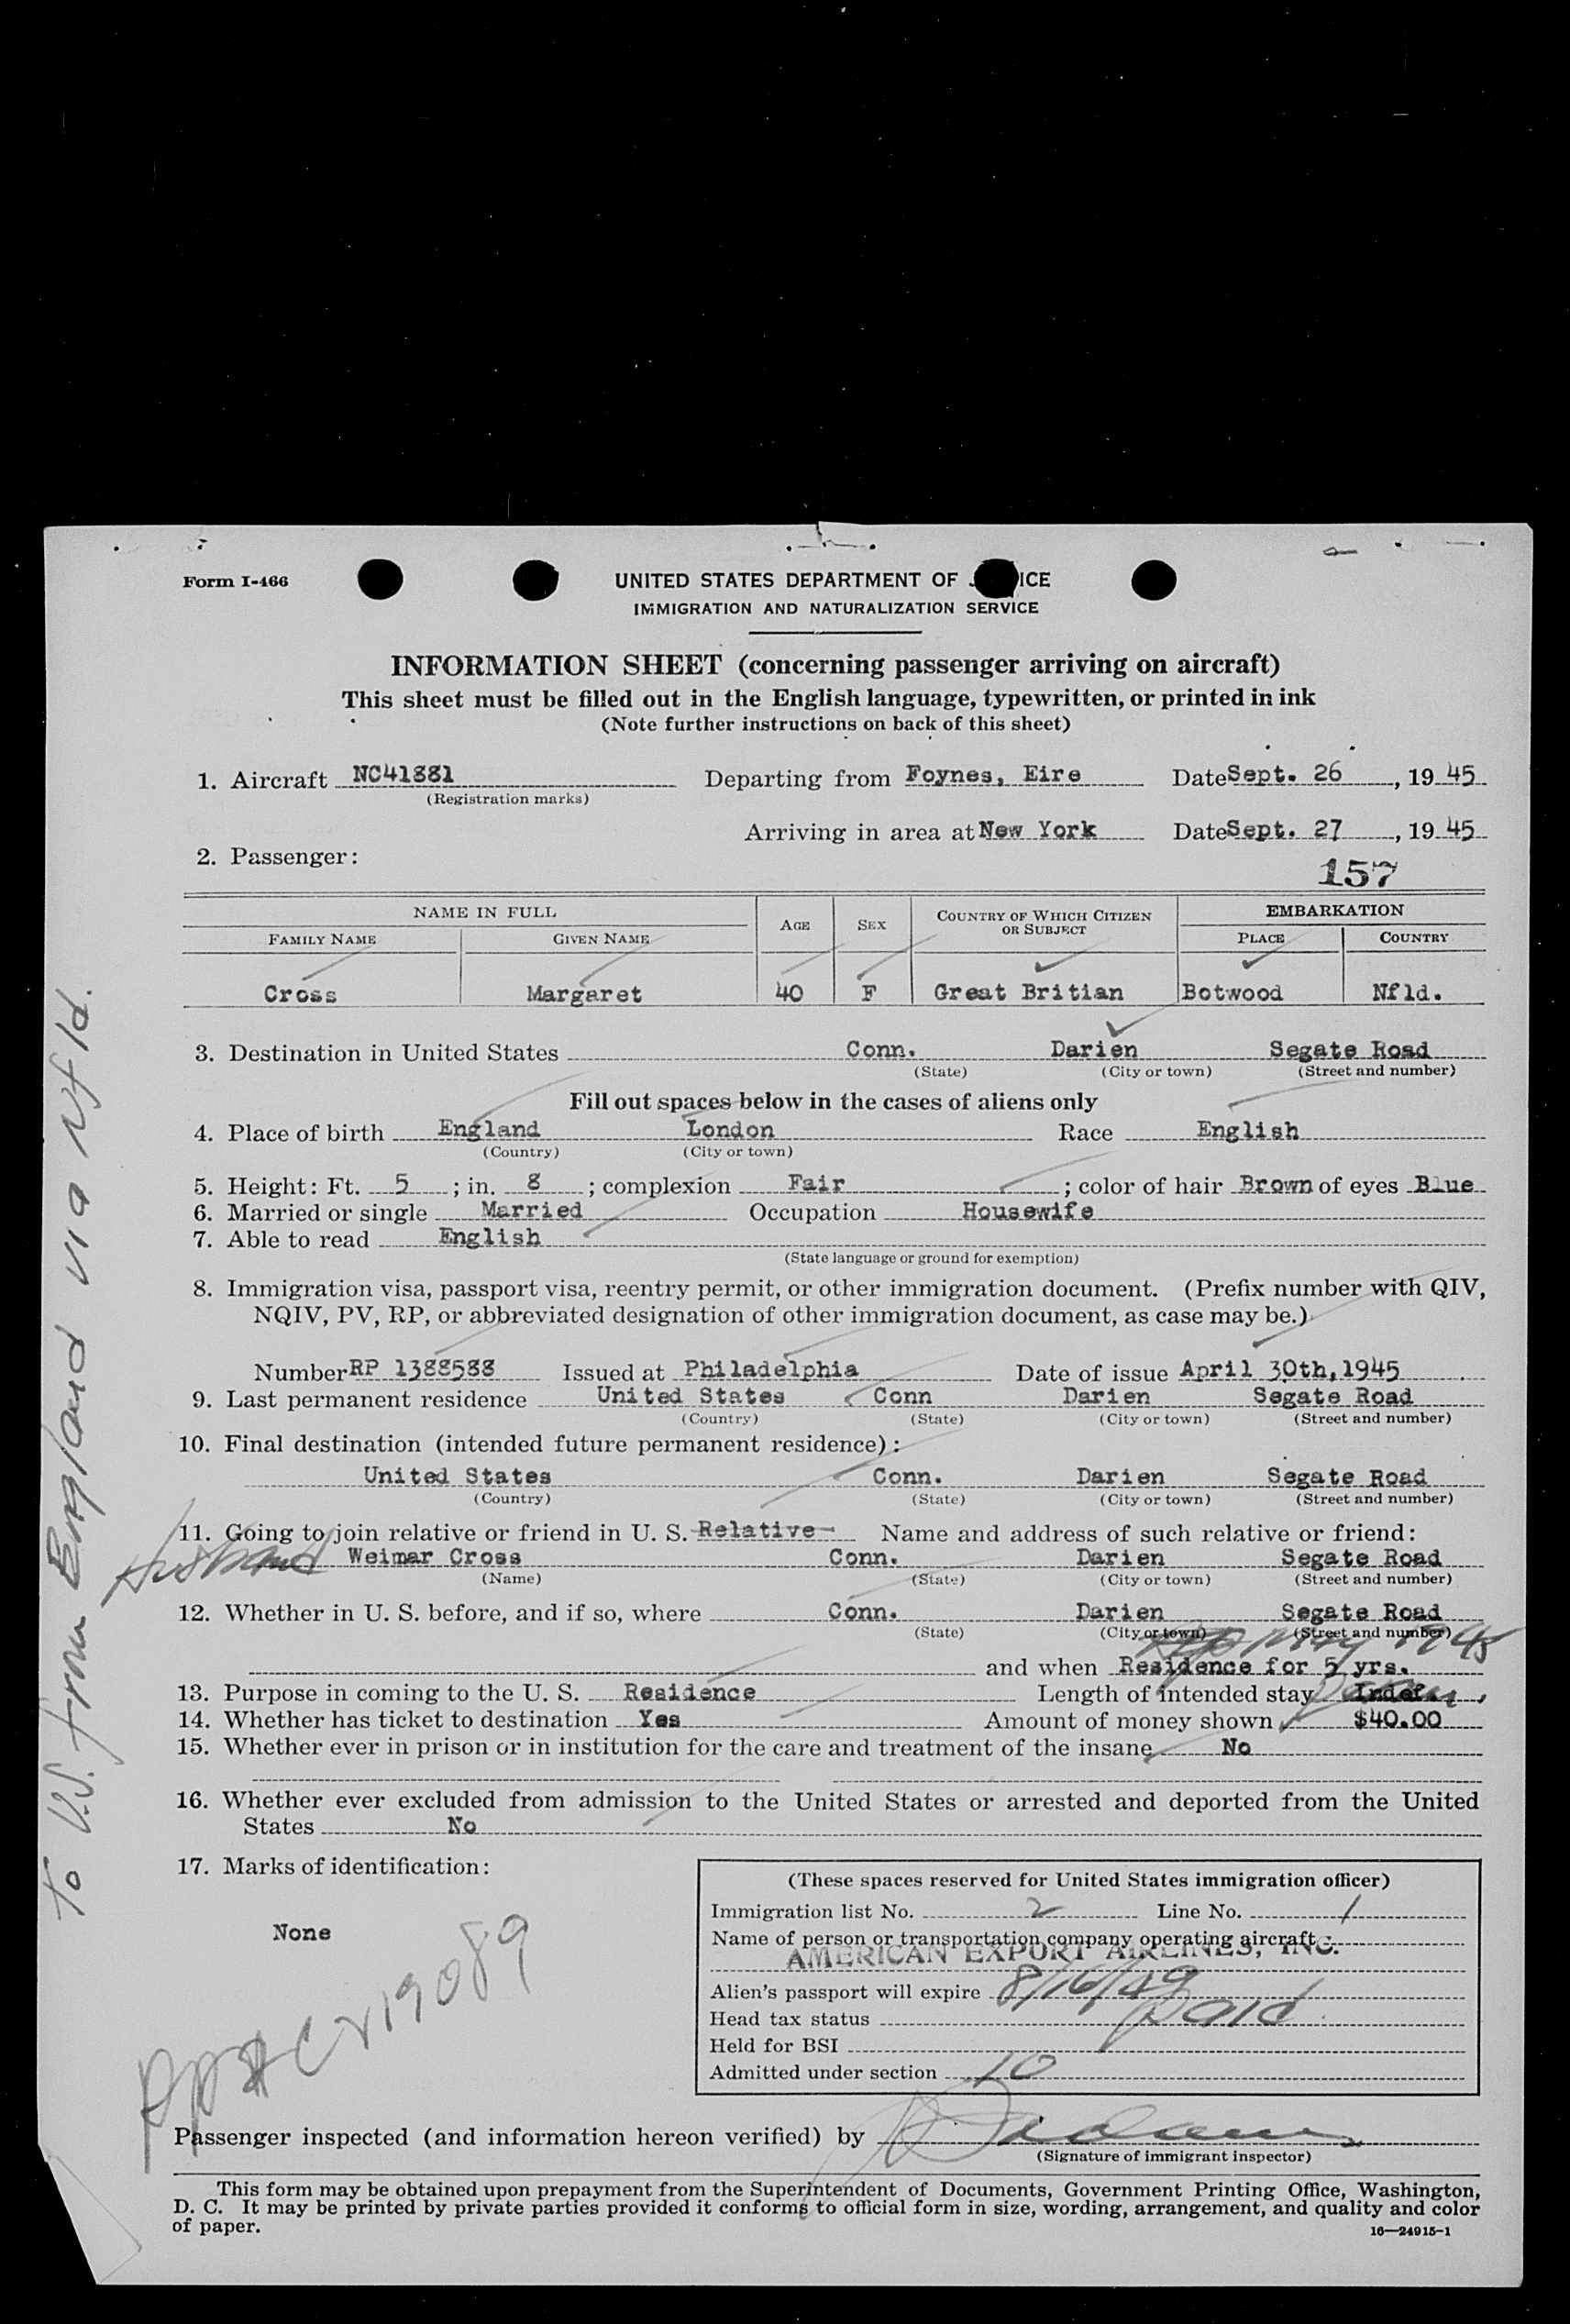 Form I-466
UNITED STATES DEPARTMENT OF J ICE
IMMIGRATION AND NATURALIZATION SERVICE
INFORMATION SHEET (concerning passenger arriving on aircraft)
This sheet must be filled out in the English language, typewritten, or printed in ink
(Note further instructions on back of this sheet)
1. Aircraft NC41881 Departing from Foynes, Eire Date Sept. 26, 19 45
(Registration marks)
Arriving in area at New York Date Sept. 27, 19 45
2. Passenger:
157
NAME IN FULL AGE SEX COUNTRY OF WHICH CITIZEN OR SUBJECT EMBARKATION
FAMILY NAME GIVEN NAME PLACE COUNTRY
Cross Margaret 40 F Great Britian Botwood Nfld.
3. Destination in United States Conn. Darien Segate Road
(State) (City or town) (Street and number)
Fill out spaces below in the cases of aliens only
4. Place of birth England London Race English
(Country) (City or town)
5. Height: Ft. 5; in. 8; complexion Fair; color of hair Brown of eyes Blue
6. Married or single Married Occupation Housewife
7. Able to read English
(State language or ground for exemption)
8. Immigration visa, passport visa, reentry permit, or other immigration document. (Prefix number with QIV,
NQIV, PV, RP, or abbreviated designation of other immigration document, as case may be.)
Number RP 1388588 Issued at Philadelphia Date of issue April 30th, 1945
9. Last permanent residence United States Conn Darien Segate Road
(Country) (State) (City or town) (Street and number)
10. Final destination (intended future permanent residence):
United States Conn. Darien Segate Road
(Country) (State) (City or town) (Street and number)
11. Going to join relative or friend in U. S. Relative- Name and address of such relative or friend:
Husband Weimar Cross Conn. Darien Segate Road
(Name) (State) (City or town) (Street and number)
12. Whether in U. S. before, and if so, where Conn. Darien Segate Road
(State) (City or town) (Street and number)
May 1945
and when Residence for 5 yrs.
13. Purpose in coming to the U. S. Residence Length of intended stay Indef.
14. Whether has ticket to destination Yes Amount of money shown $40.00
15. Whether ever in prison or in institution for the care and treatment of the insane No
16. Whether ever excluded from admission to the United States or arrested and deported from the United
States No
17. Marks of identification:
None
(These spaces reserved for United States immigration officer)
Immigration list No. 2 Line No. 1
Name of person or transportation company operating aircraft
AMERICAN EXPORT AIRLINES, INC.
Alien's passport will expire 8/16/49
Head tax status paid
Held for BSI
Admitted under section 10
Passenger inspected (and information hereon verified) by
(Signature of immigrant inspector)
This form may be obtained upon prepayment from the Superintendent of Documents, Government Printing Office, Washington,
D. C. It may be printed by private parties provided it conforms to official form in size, wording, arrangement, and quality and color
of paper.
16—24915-1
To U.S. from England via Nfld.